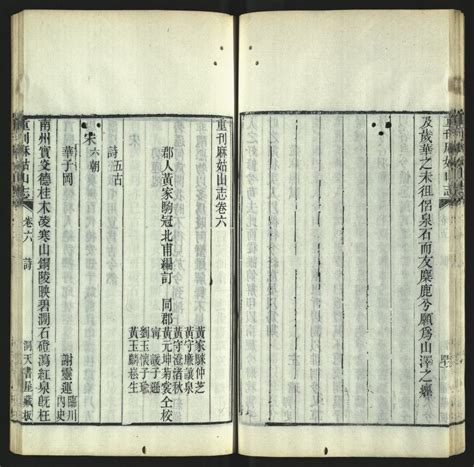 重刊麻姑山志
及歲華之未徂侶泉石而友麋鹿兮願爲山澤之癯
重刊麻姑山志卷六
郡人黃家駒冠北甫編訂 同郡
黃家駼仲芝
黃守廉讓泉
黃守澄渚秋
黃元坤菊裳仝校
劉玉懷子瑜
黃玉麟
詩五古
宋六朝
華子岡 謝靈運臨川內史
南州實炎德桂木凌寒山銅陵映碧澗石磴瀉紅泉旣枉
重刊麻姑山志 卷六 詩 洞天書屋藏板